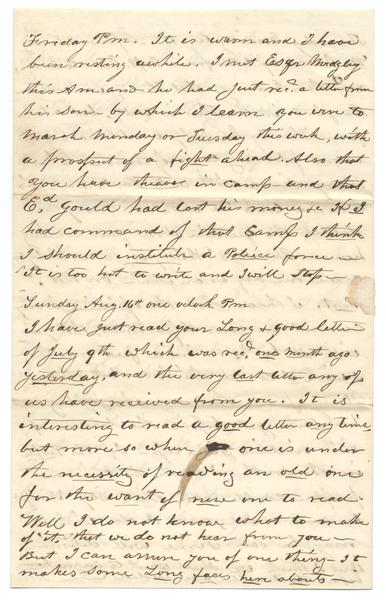 Friday P.m. It is warm and I have
been resting awhile. I met Esqr Mudgley
this Am and he had just recd. a letter from
his son by which I learn you were to
march Monday or Tuesday this week, with
a prospect of a fight ahead. Also that
you have theaves in camp and that
Ed, Gould had lost his money &c If I
had command of that Camp I think
I should institute a Police force —
It is too hot to write and I will stop —
Sunday Aug. 16th one oclock P.m
I have just read your Long & good letter
of July 9th which was recd, one month ago
yesterday, and the very last letter any of
us have received from you. It is
interesting to read a good letter any time,
but more so when one is under
the necessity of reading an old one
for the want of new one to read.
Well I do not know what to make
of it, that we do not hear from you —
But I can assure you of one thing — It
makes some Long faces here abouts —